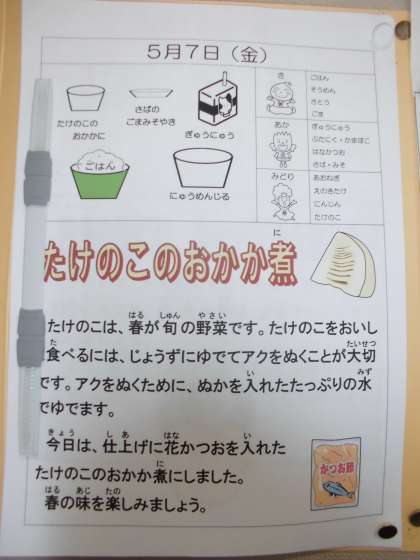 5月7日（金）
たけのこの
おかかに
さばの
ごまみそやき
ぎゅうにゅう
ごはん
にゅうめんじる
き
ごはん
そうめん
さとう
ごま
あか
ぎゅうにゅう
ぶたにく・かまぼこ
はなかつお
さば・みそ
みどり
あおねぎ
えのきたけ
にんじん
たけのこ
に
たけのこのおかか煮
はる しゅん やさい
たけのこは、春が旬の野菜です。たけのこをおいし
た たいせつ
食べるには、じょうずにゆでてアクをぬくことが大切
い みず
です。アクをぬくために、ぬかを入れたたっぷりの水
でゆでます。
きょう しあ はな い
今日は、仕上げに花かつおを入れた
に
たけのこのおかか煮にしました。
はる あじ たの
春の味を楽しみましょう。
かつお節